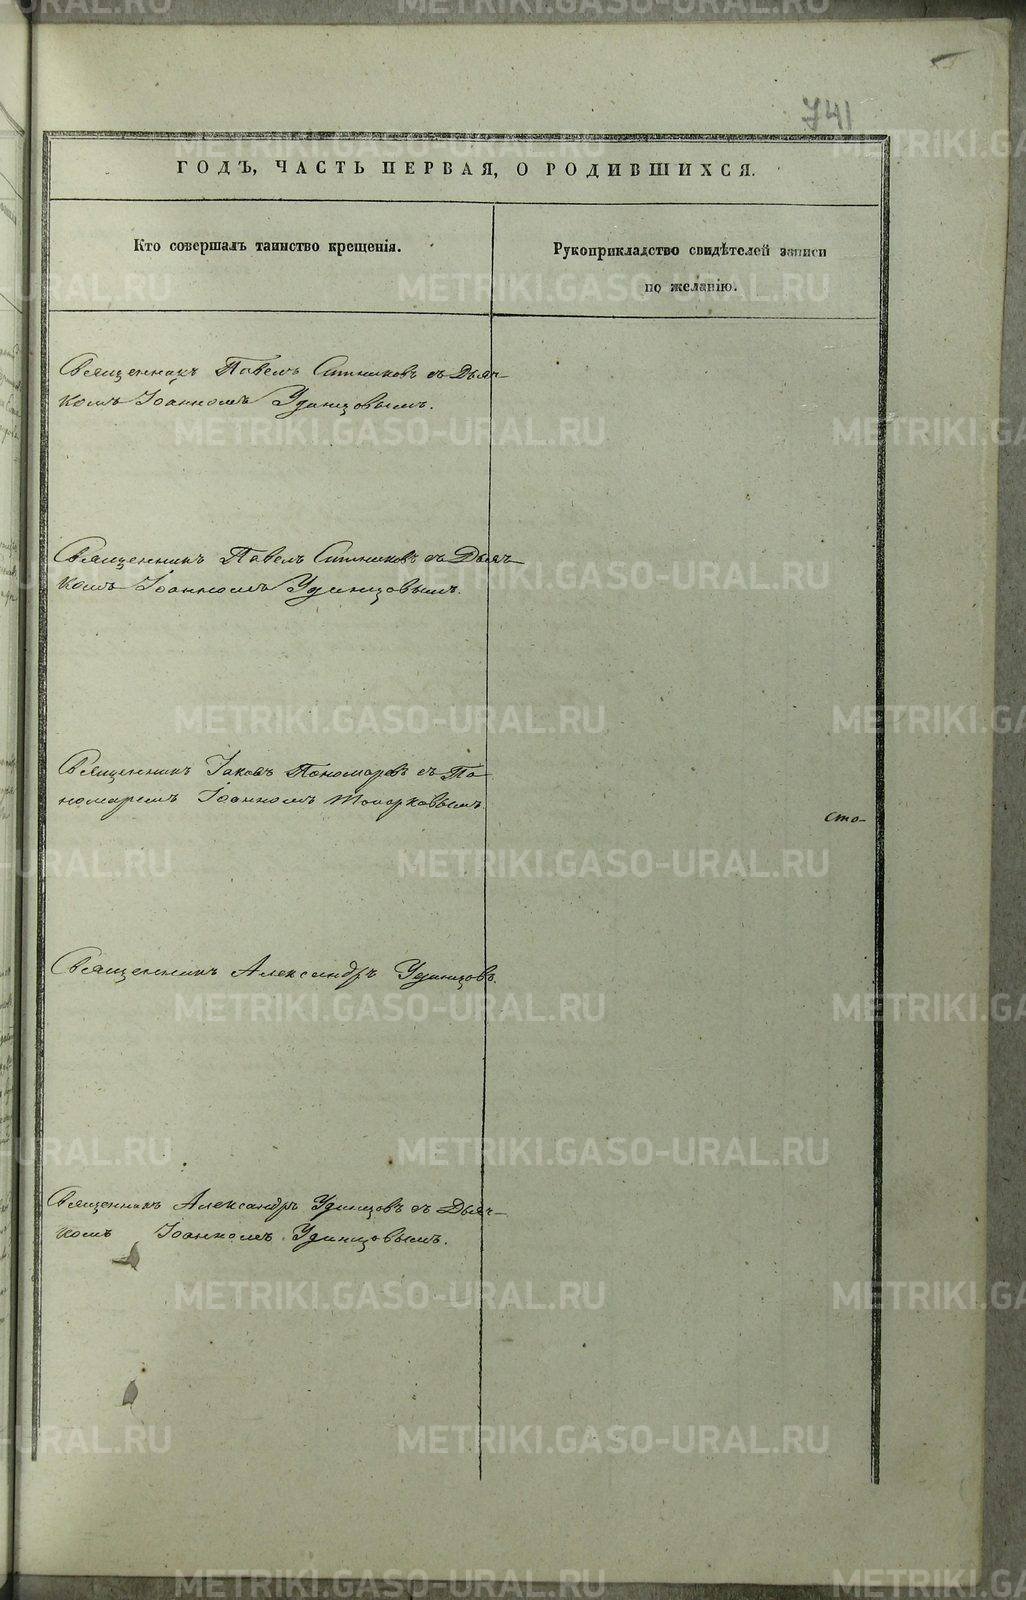 741
ГОДЪ, ЧАСТЬ ПЕРВАЯ, О РОДИВШИХСЯ.
Кто совершалъ таинство крещенія.
Рукоприкладство свидѣтелей записи
по желанію.
Священникъ Павелъ Ситниковъ съ Дьяч-
комъ Іоанномъ Удинцовымъ.
Священникъ Павелъ Ситниковъ съ Дьяч-
комъ Іоанномъ Удинцовымъ.
Священникъ Іаковъ Пономаревъ съ По-
номаремъ Іоанномъ
сто-
Священникъ Александръ Удинцовъ.
Священникъ Александръ Удинцовъ съ Дьяч-
комъ Іоанномъ Удинцовымъ.
METRIKI.GASO-URAL.RU